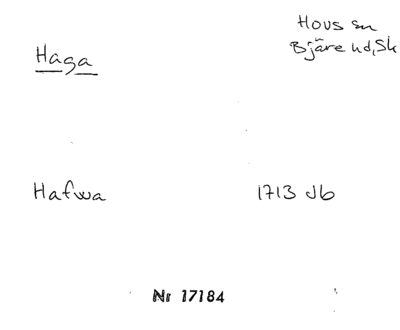 Hovs sn
Bjäre hd, Sk
Haga
Hafwa 1713 Jb
Nr 17184